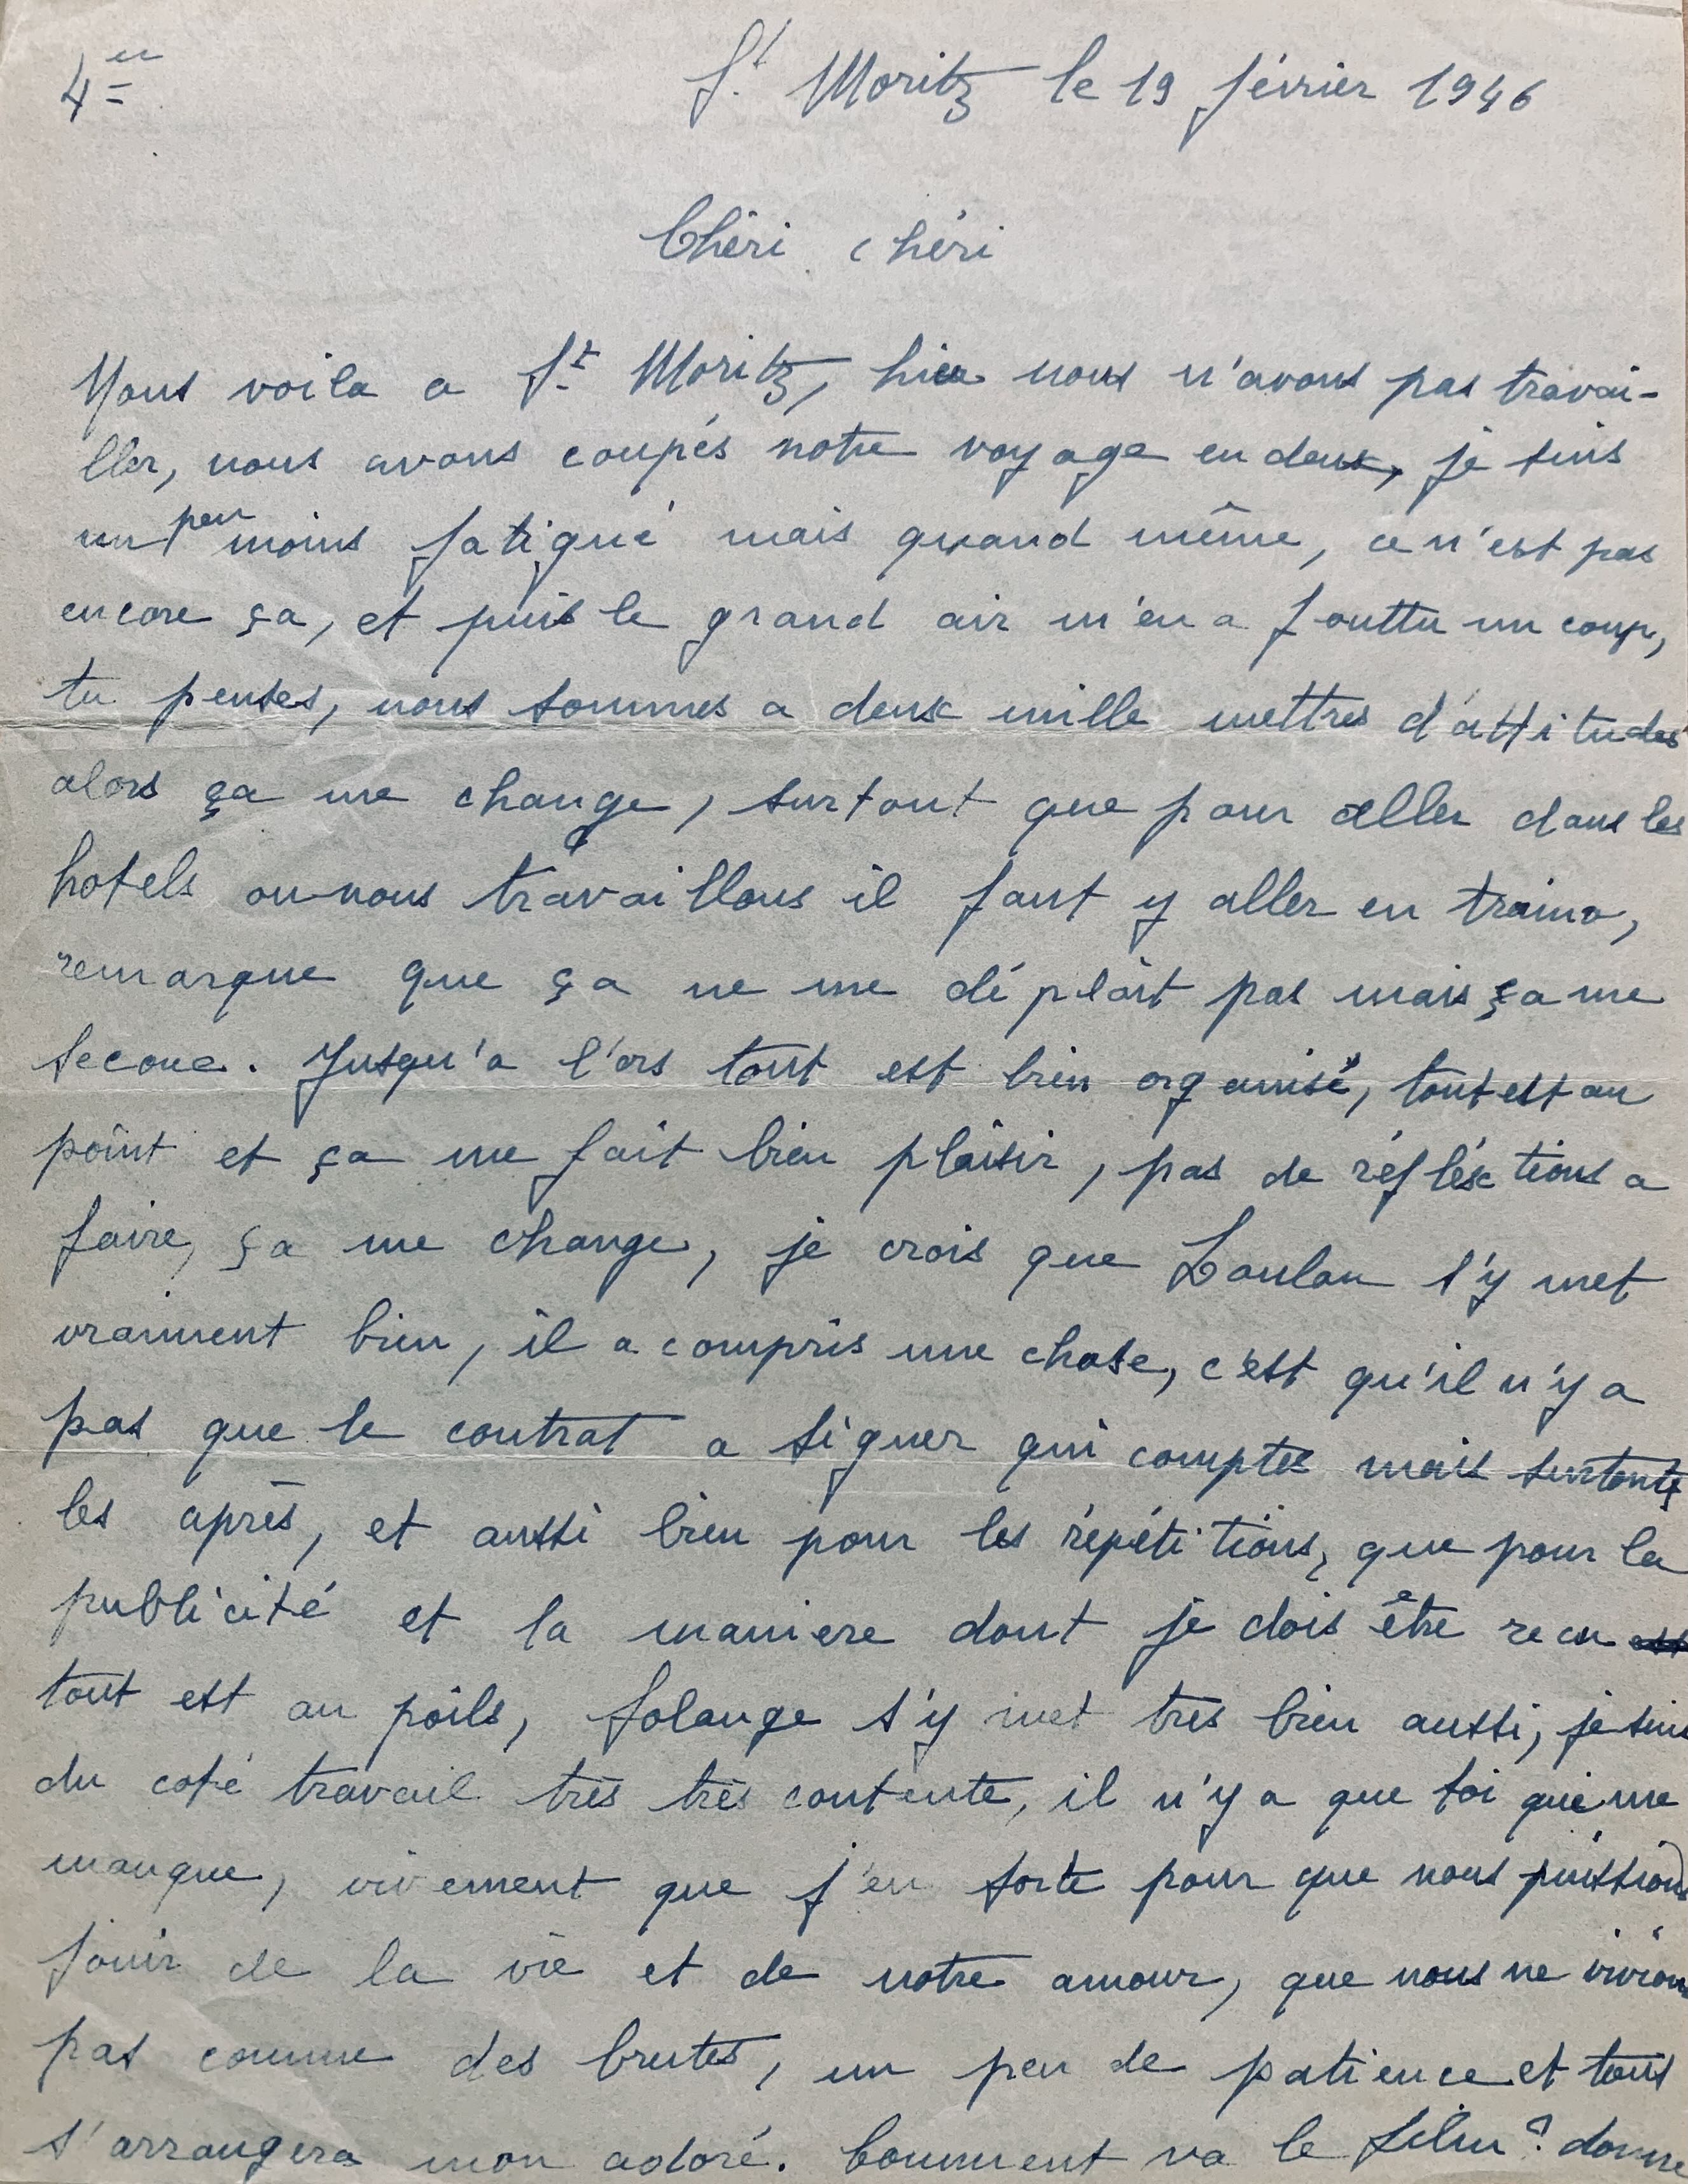 4er
St Moritz le 19 février 1946
Chéri chéri
Nous voila a St Moritz, hier nous n'avons pas travai-
ller, nous avons coupés notre voyage en deux, je suis
un peu moins fatigué mais quand même, ce n'est pas
encore ça, et puis le grand air m'en a fouttu un coup,
tu penses, nous sommes a deux mille mettres d'attitudes
alors ça me change, surtout que pour aller dans les
hotels ou nous travaillons il faut y aller en traino,
remarque que ça ne me déplait pas mais ça me
secoue. Jusqu'a l'ors tout est bien organisé, tout est au
point et ça me fait bien plaisir, pas de réfléxtions a
faire, ça me change, je crois que Loulou s'y met
vraiment bien, il a compris une chose, c'est qu'il n'y a
pas que le contrat a signer qui comptes mais surtout
les après, et aussi bien pour les répétitions, que pour la
publicité et la maniere dont je dois être recu
tout est au poils, Solange s'y met tres bien aussi, je suis
du coté travail très très contente, il n'y a que toi qui me
manque, vivement que j'en sorte pour que nous puissions
jouir de la vie et de notre amour, que nous ne vivions
pas comme des brutes, un peu de patience et tout
s'arrangera mon adoré. Comment va le film? donne